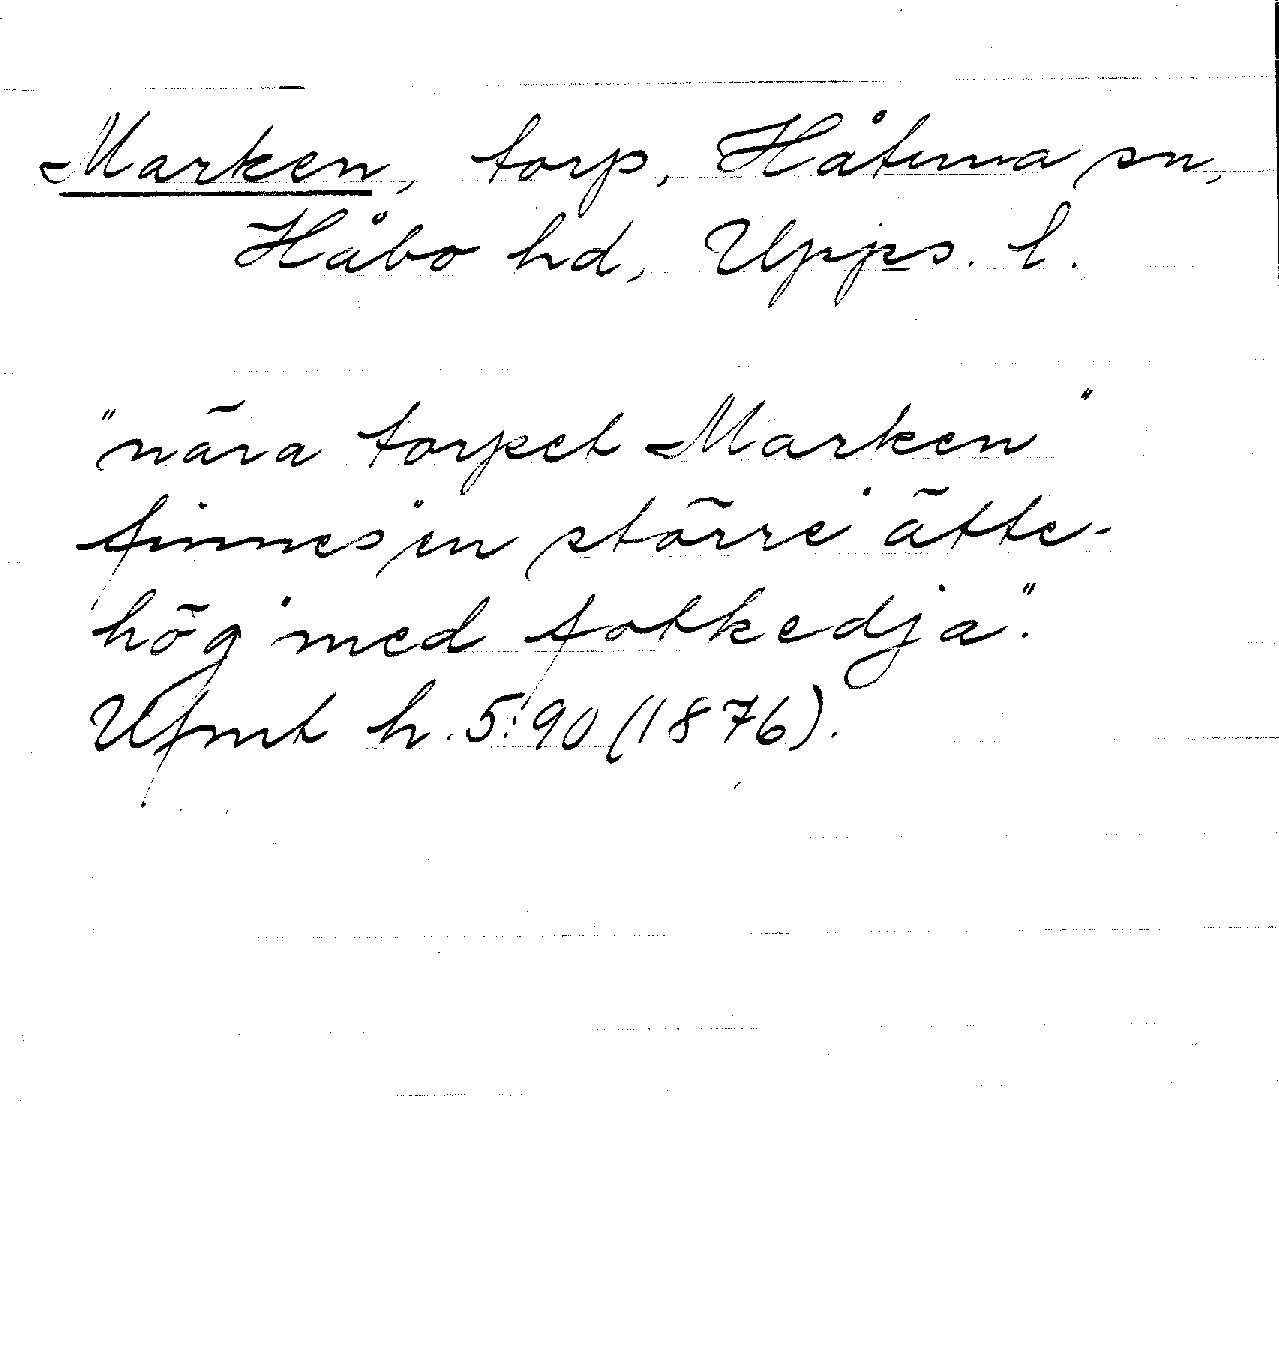 Marken, torp, Håtuna sn,
Håbo hd, Upps. l.
"nära torpet Marken"
finnes en större ätte-
hög med fotkedja".
Ufmt h. 5:90 (1876).